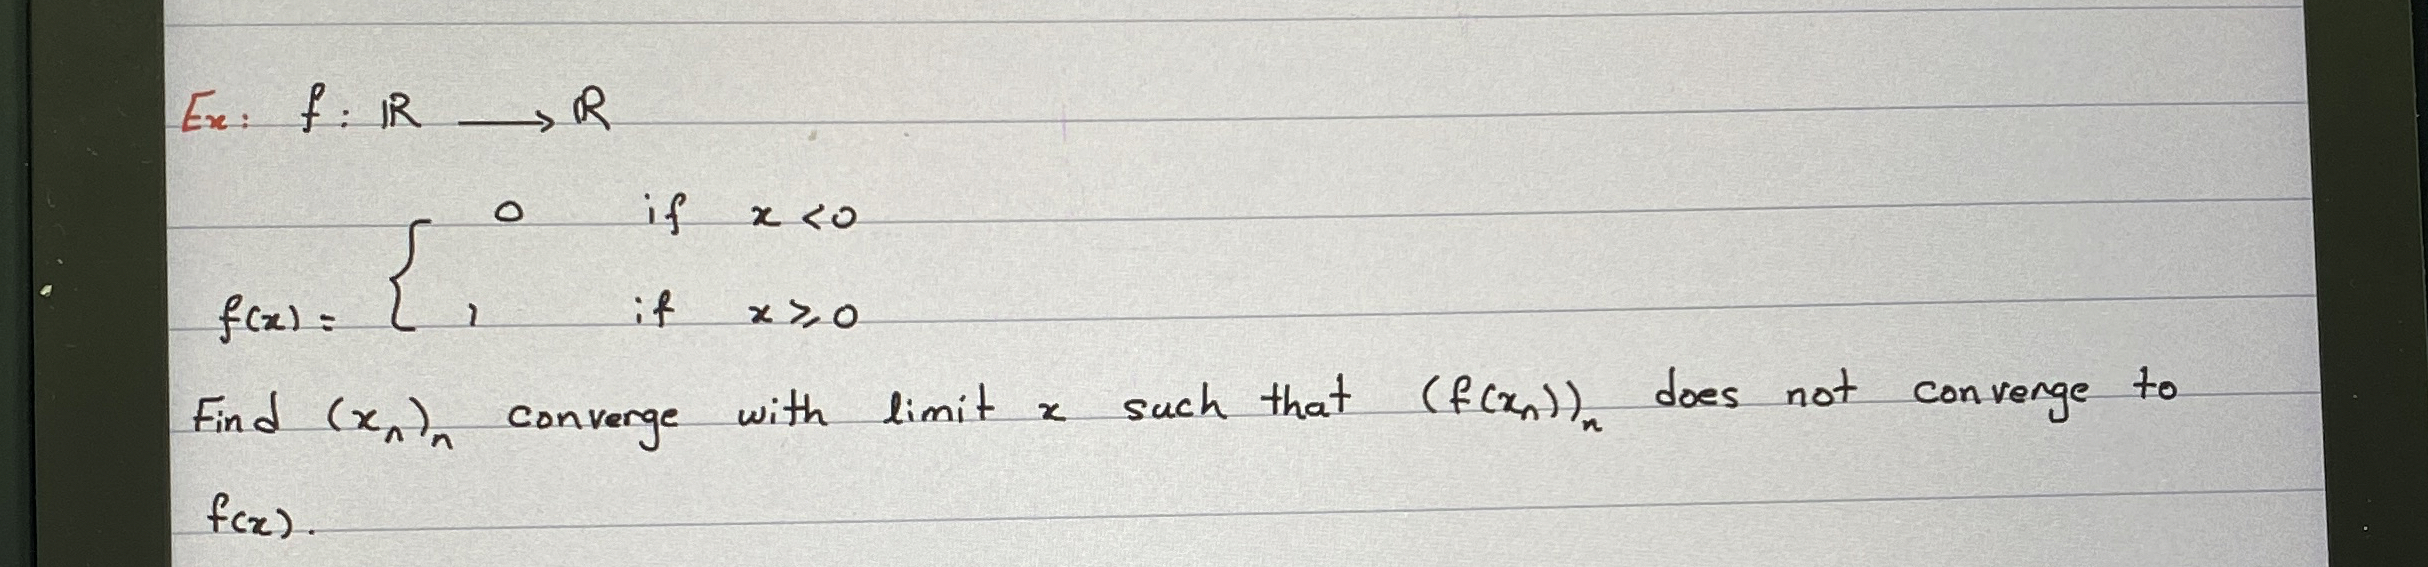 Ex: f: ℝ ⟶ ℝ
0 if x <0
f(x) = { 1 if x ⩾ 0
Find (xₙ)ₙ converge with limit x such that (f(xₙ))ₙ does not converge to
f(x).